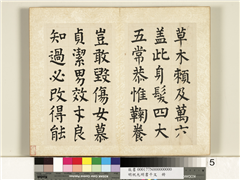 草木賴及萬方
蓋此身髮四大
五常恭惟鞠養
豈敢毀傷女慕
貞潔男效才良
知過必改得能
5